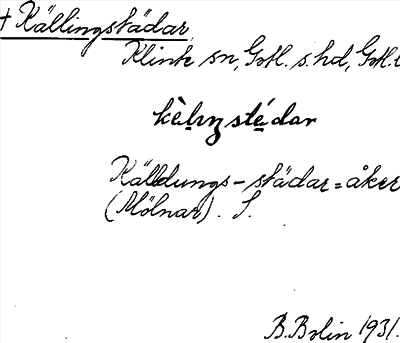 + Källingstädar
Klinte sn, Gotl. s. hd, Gotl. l
kèlıŋ stédar
Källdungs-städar = åker
(Mölnar). S.
B. Bolin 1931.